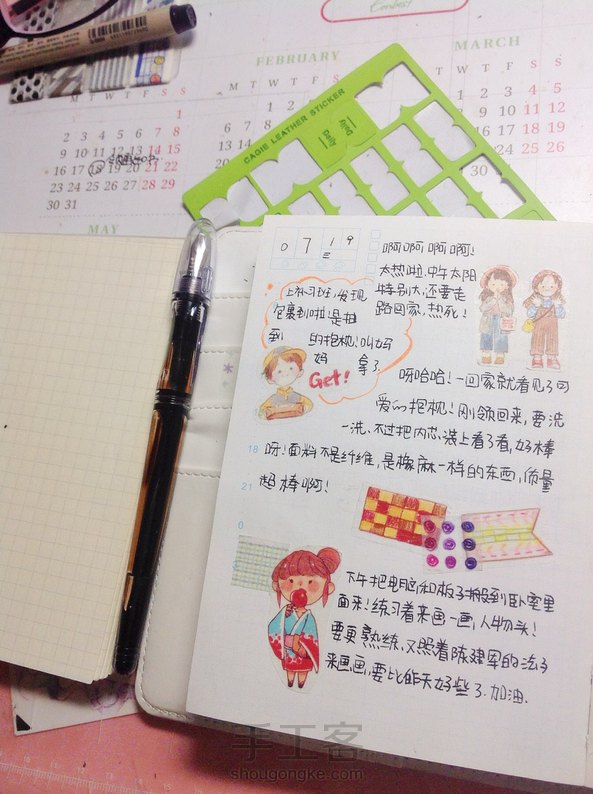 FEBRUARY
MARCH
M T W T F S S
M T W T F S S
M T W T F S S
1
1 2
2 3 4 5 6 7 8
9 10 11 12 13 14 15
16 17 18 19 20 21 22
23 24 25 26 27 28 29
30 31
MAY
CAGIE LEATHER STICKER
Daily
Daily
0 7 1 9
啊啊啊啊!
太热啦,中午太阳
特别大,还要走
路回家,热死!
上补习班,发现
包裹到啦是抽
到 的抱枕!叫妈
妈 拿了
Get!
呀哈哈!一回家就看见了可
爱的抱枕!刚领回来,要洗
一洗,不过把内芯装上看了看,好棒
18
呀!面料不是纤维,是像麻一样的东西,质量
21
超棒啊!
0
下午把电脑和板子搬到卧室里
面来!练习着来画一画,人物头!
要更熟练,又照着陈建军的法子
来画画,要比昨天好些了.加油.
手工客
shougongke.com